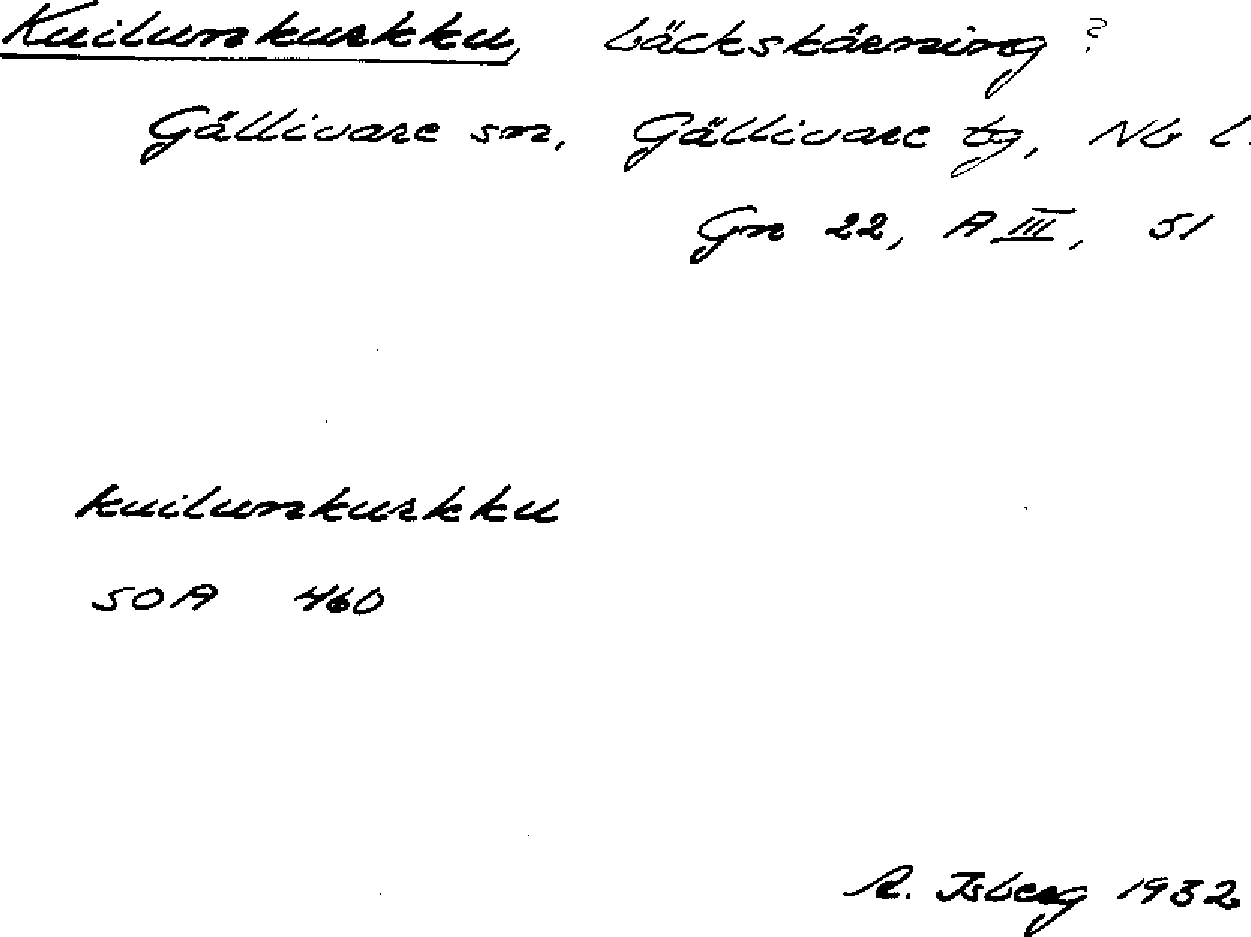 Kuilunkurkku, bäckskärning ?
Gällivare sn, Gällivare tg, Nb l.
Gn 22, A III, 51
kuilunkurkku
SOA 460
A. Isberg 1932